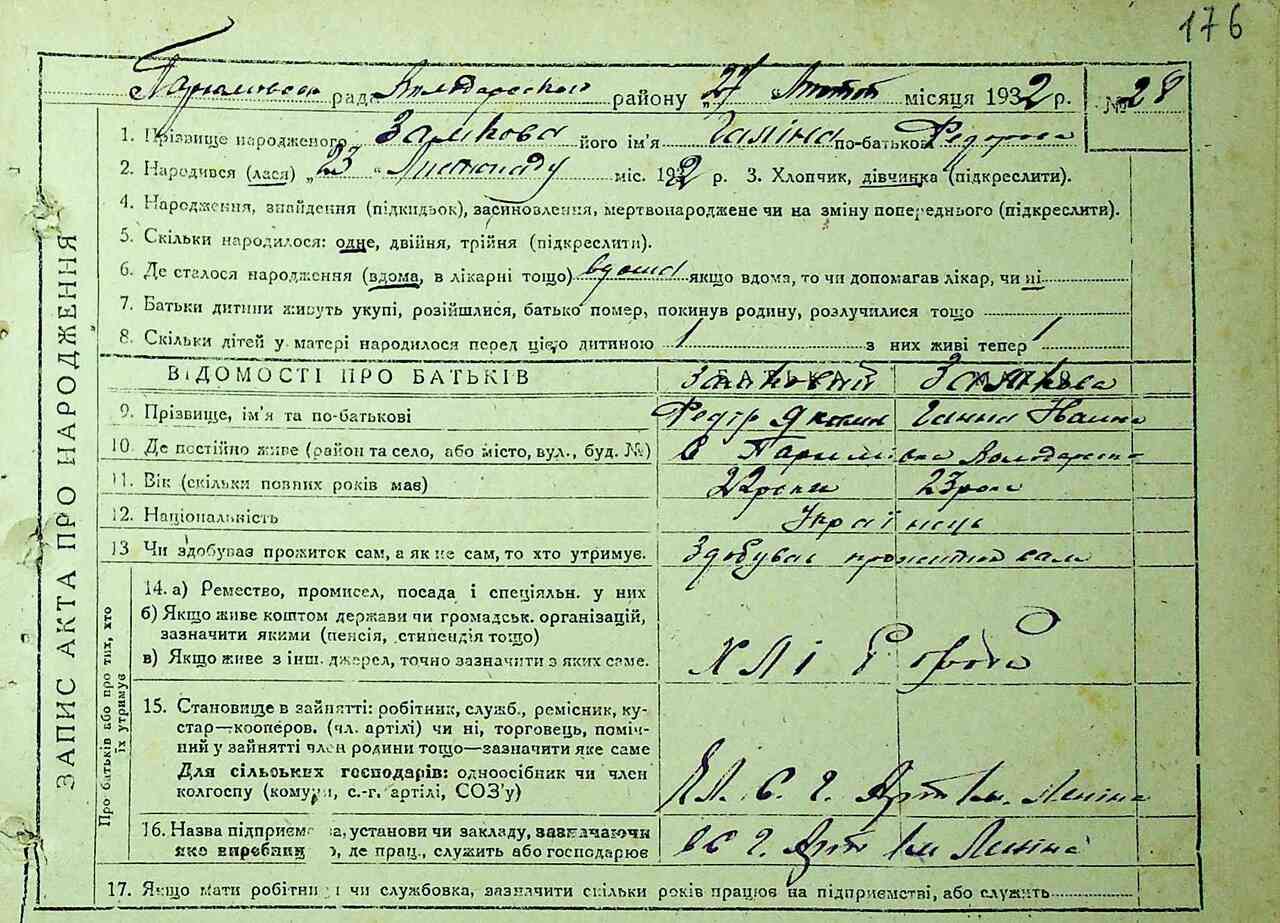 176
рада Володарской району „27 “ місяця 1932 р. № 28
1. Прізвище народженого Замкова його ім'я Галіна по-батькові Федоров
2. Народився (лася) „23 “ Листопаду міс. 1932 р. 3. Хлопчик, дівчинка (підкреслити).
4. Народження, знайдення (підкидьок), засиновлення, мертвонароджене чи на зміну попереднього (підкреслити).
5. Скільки народилося: одне, двійня, трійня (підкреслити).
6. Де сталося народження (вдома, в лікарні тощо) вдома якщо вдома, то чи допомагав лікар, чи ні
7. Батьки дитини живуть укупі, розійшлися, батько помер, покинув родину, розлучилися тощо
8. Скільки дітей у матері народилося перед цією дитиною 1 з них живі тепер 1
ВІДОМОСТІ ПРО БАТЬКІВ БАТЬКА Замковий Замкова
9. Прізвище, ім'я та по-батькові Федір Яковин Ганна
10. Де постійно живе (район та село, або місто, вул., буд. №) с
11. Вік (скільки повних років має) 22 роки 23 роки
12. Національність Українець
13 Чи здобував прожиток сам, а як не сам, то хто утримує. Здобував прожиток сам
14. а) Ремество, промисел, посада і спеціяльн. у них
б) Якщо живе коштом держави чи громадськ. організацій,
зазначити якими (пенсія, стипендія тощо)
в) Якщо живе з інш. джерел, точно зазначити з яких саме. хлі робо
15. Становище в зайнятті: робітник, служб., ремісник, ку-
стар—кооперов. (чл. артілі) чи ні, торговець, поміч-
ний у зайнятті член родини тощо—зазначити яке саме
Для сільських господарів: одноосібник чи член
колгоспу (комуни, с.-г. артілі, СОЗ'у) Чл. С. Г. Арт Ім. Леніна
16. Назва підприєм ва, установи чи закладу, зазначаючи
яке виробни о, де прац., служить або господарює в С Г. Арт Ім Леніна
17. Якщо мати робітни я чи службовка, зазначити скільки років працює на підприємстві, або служить
ЗАПИС АКТА ПРО НАРОДЖЕННЯ
Про батьків або про тих, хто
їх утримує